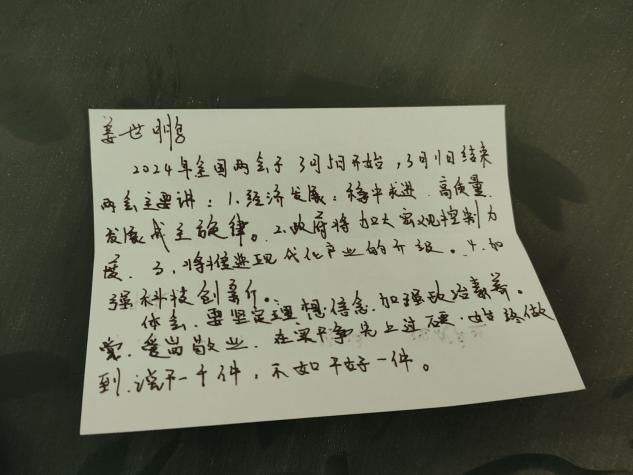 姜世鹏
2024年全国两会于3月5日开始，3月11日结束
两会主要讲：1.经济发展：稳中求进 高质量
发展成主旋律。2.政府将加大宏观控制力
度。3.将推进现代化产业的升级。4.加
强科技创新。
体会：要坚定理想信念，加强政治素养。
爱岗敬业，在实干争先上过硬，始终做
到，说千件，不如干好一件。